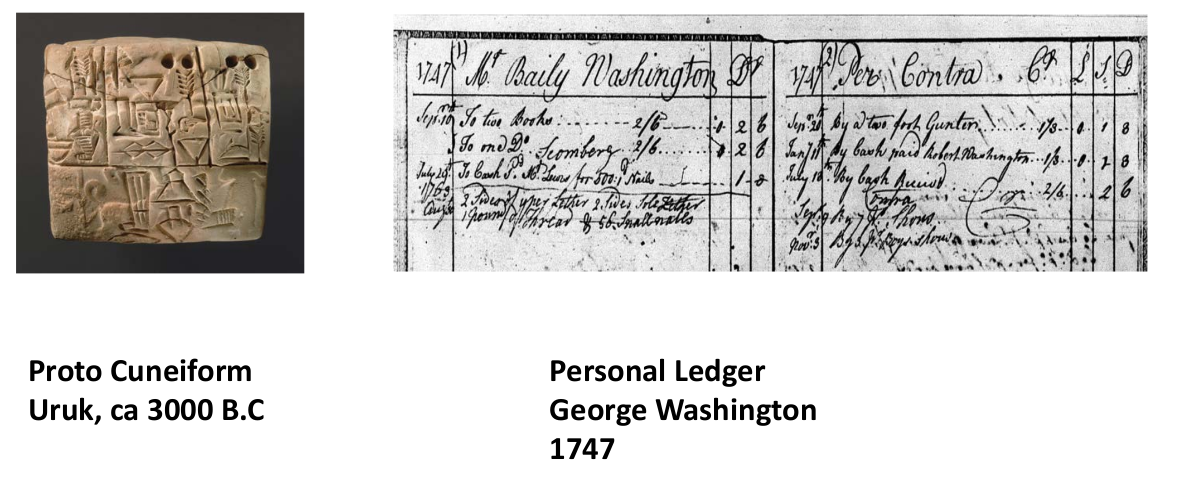 1747 (1) Mr. Baily Washington Dr
Sepr. 10th To two Books 2/6 0 2 6
To one Do. Scomberg 2/6 0 2 6
July 29th To Cash Pd. Mr. Lewis for 500 Nails 1 8
2 Sides of upper Lether 2 Sides Sole Lether
1 pound of thread & 56 Small nails
1747 (2) Per Contra Cr. £ S. D
Sepr. 20th By a two foot Gunter 1/3 0 1 3
Jany 11th By Cash paid Robert Washington 1/3 0 1 3
July 18th By Cash 2/6 2 6
Contra
Sepr. 9 By 7 Shous
Novr. 3 By 3 pr. Boys Shous
Proto Cuneiform
Uruk, ca 3000 B.C
Personal Ledger
George Washington
1747